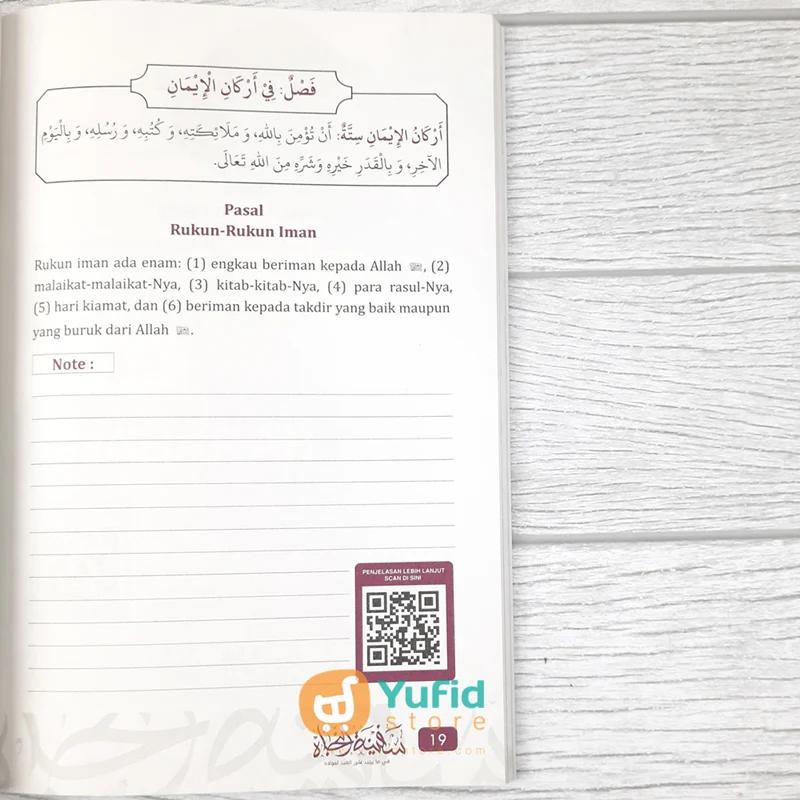 فَصْلٌ: فِيْ أَرْكَانِ الْإِيْمَانِ
أَرْكَانُ الإِيْمَانِ سِتَّةٌ: أَنْ تُؤْمِنَ بِاللهِ، وَ مَلَائِكَتِهِ، وَ كُتُبِهِ، وَ رُسُلِهِ، وَ بِالْيَوْمِ
الآخِرِ، وَ بِالْقَدَرِ خَيْرِهِ وَشَرِّهِ مِنَ اللهِ تَعَالَى.
Pasal
Rukun-Rukun Iman
Rukun iman ada enam: (1) engkau beriman kepada Allah ﷻ, (2)
malaikat-malaikat-Nya, (3) kitab-kitab-Nya, (4) para rasul-Nya,
(5) hari kiamat, dan (6) beriman kepada takdir yang baik maupun
yang buruk dari Allah ﷻ.
Note :
PENJELASAN LEBIH LANJUT
SCAN DI SINI
Yufid
store
سفينة النجاة
19